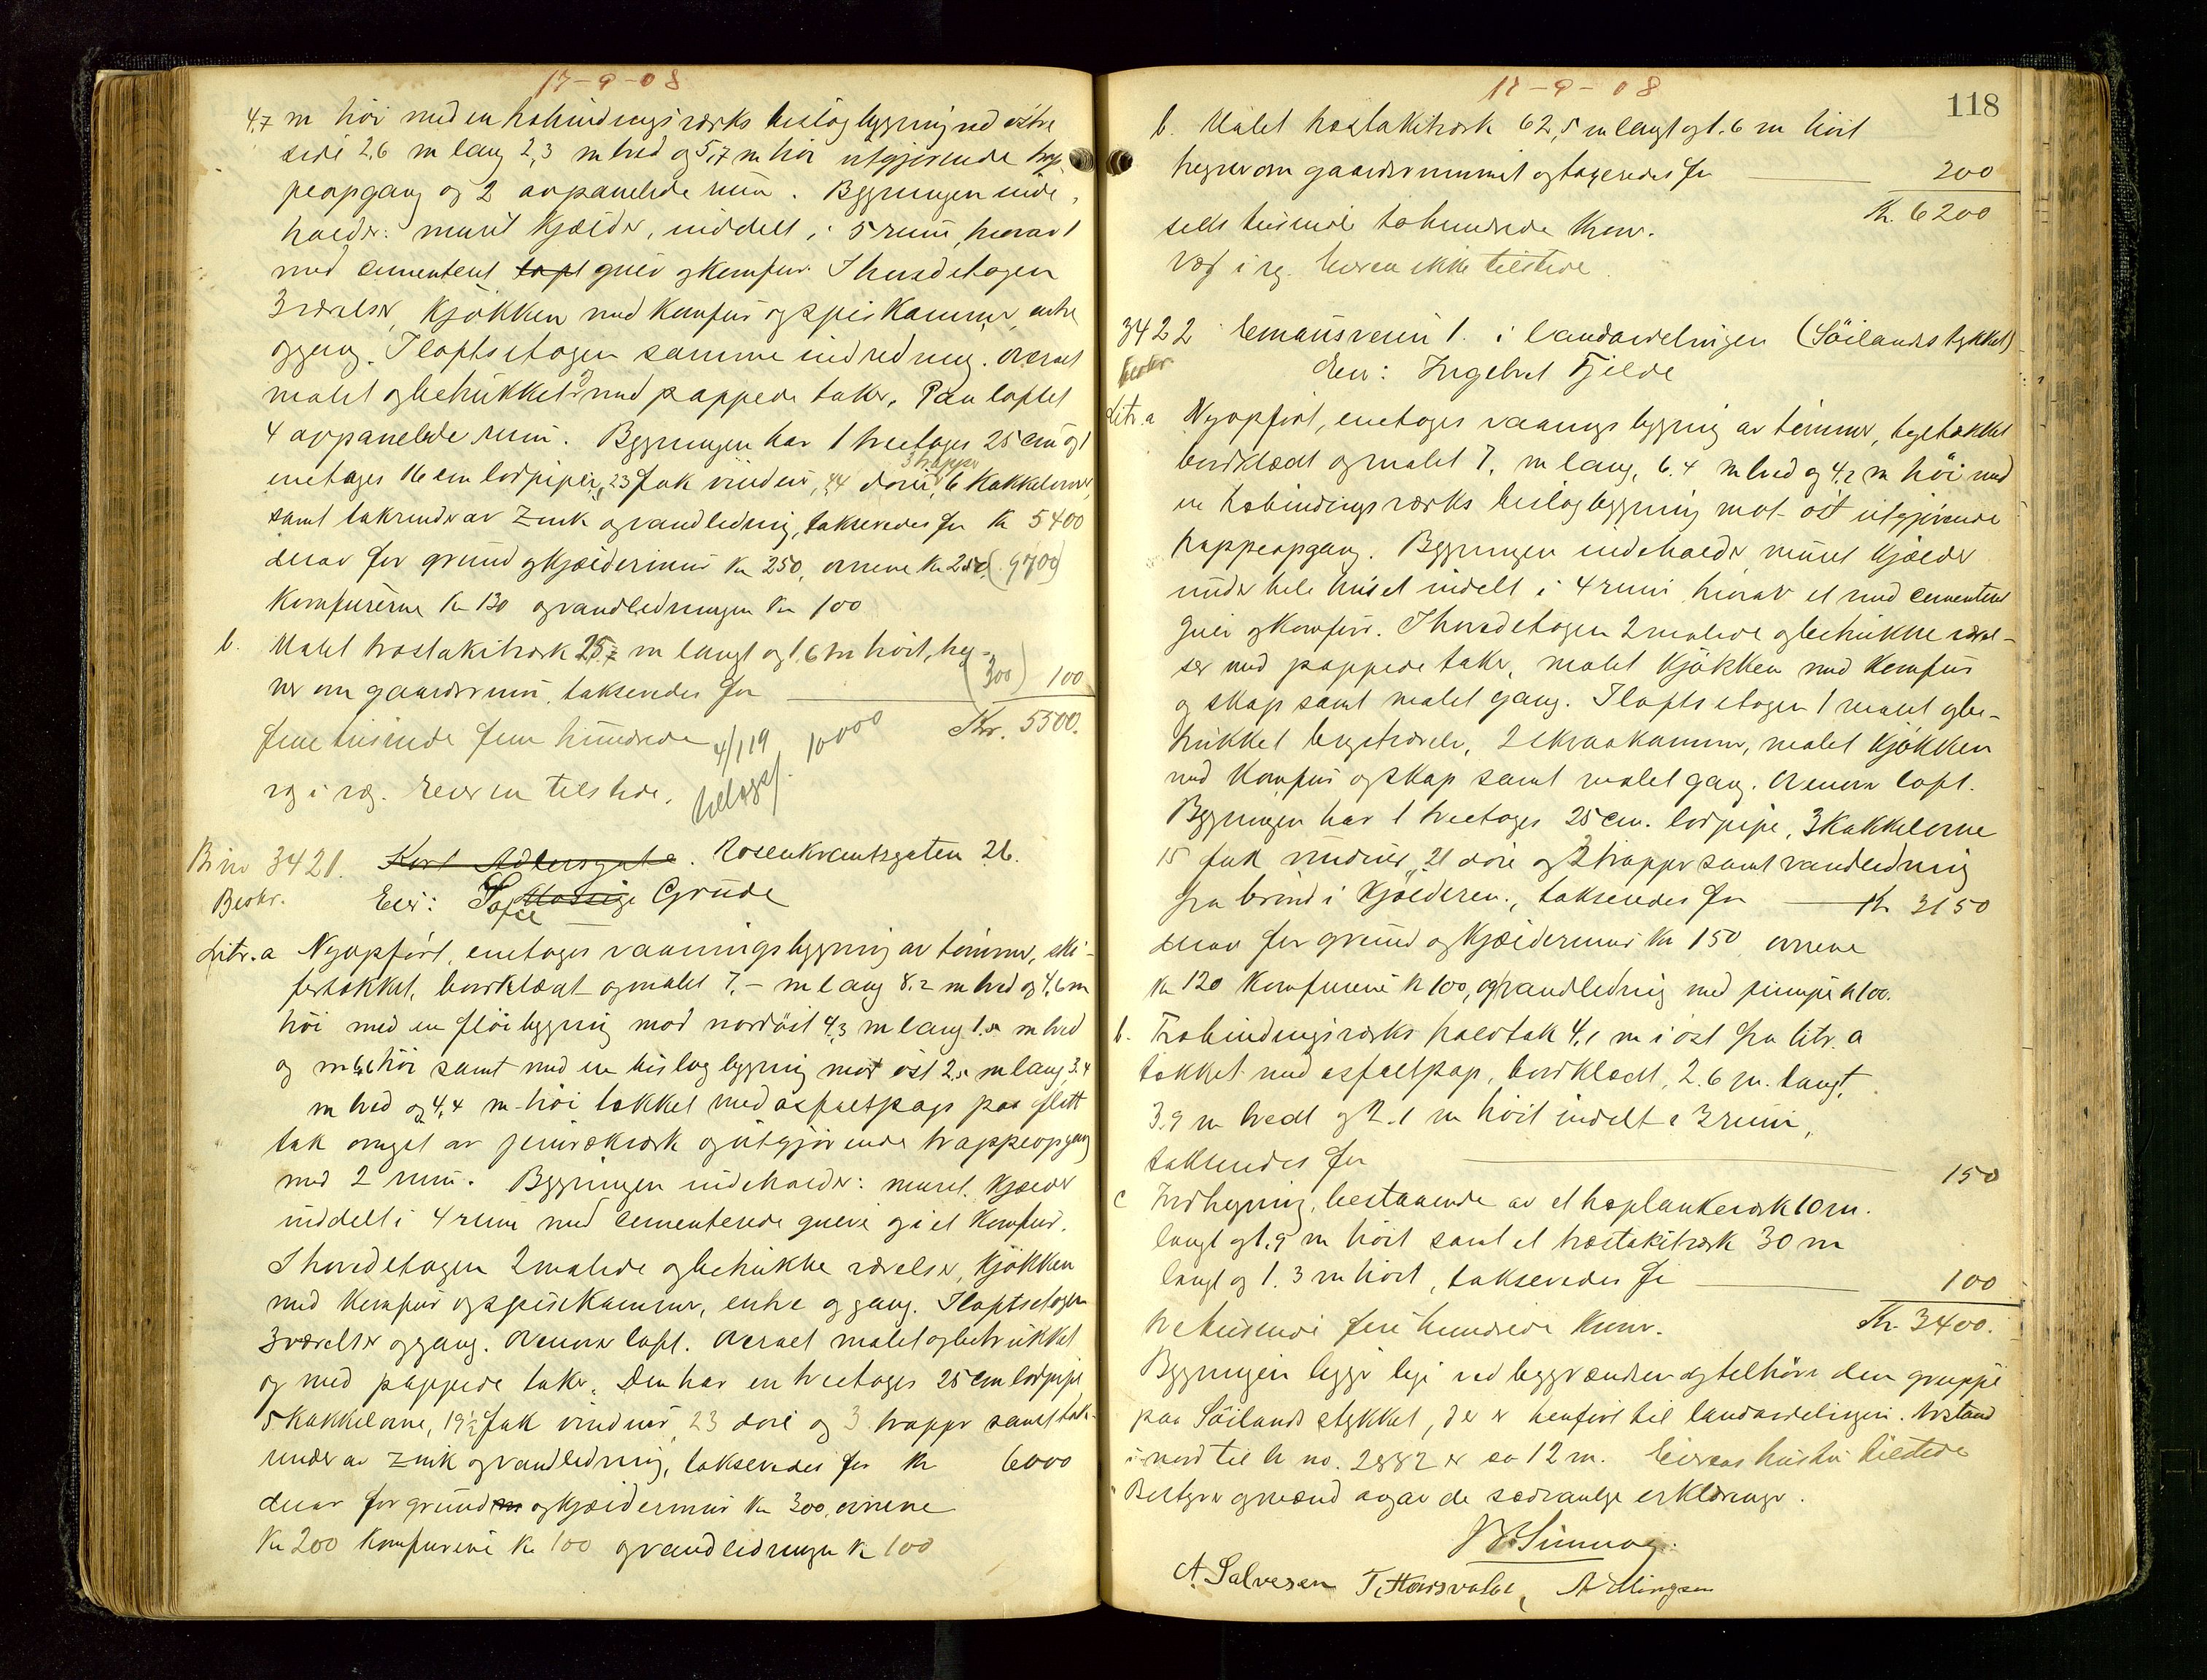 17-9-08
4,7 m höi med en trobindingsværks bislagbygning ved østre
side 2,6 m lang 2,3 m bred og 5,7 m höi utgjörende trap
peopgang og 2 avpanelede rum. Bygningen inde,
holder: muret kjælder, inddelt i 5 rum, hvorav 1
med cementert grue og komfur. I hovedetagen
3 værelser, kjökken med komfur og spiskammer, entre
og gang. I loftsetagen samme indredning. Overalt
malet og betrukket med pappede taker. Paa loftet
4 avpanelede rum. Bygningen har 1 treetages 25 cm og 1
enetages 16 cm lodpiper, 23 fak vinduer, 24 döre, 3 trapper 6 kakkelovner,
samt takrender av zink og vandledning, takseredes for Kr 5400
derav for grund og kjældermur Kr 250, ovnene Kr 250, (9700)
komfurerne Kr 130 og vandledningen Kr 100
b. Malet træstakitværk 25,7 m langt og 1,6 m höit, heg-
ner om gaardsrum, takseredes for (300) 100
Kr. 5500.
fem tusinde fem hundrede 4/1 19 10000
vg i rg. Eieren tilstede.
Br no 3421. Kort Adlersgate. Rosenkrantsgaten 26.
Beskr. Eier: Tofte Grude
Litr. a Nyopfört, enetages vaaningsbygning av tömmer, ski-
fertækket, bordklædt og malet 7,- m lang 8,2 m bred og 4,6 m
höi med en flöibygning mod nordöst 4,3 m lang 1,5 m bred
og m 4,6 höi samt med en bislagbygning mot öst 2,5 m lang, 3.4
m bred og 4,4 m höi tækket med asfaltpap paa flatt
tak omgit av og utgjörende trappeopgang
med 2 rum. Bygningen indeholder: muret kjælder
inddelt i 4 rum med cementerede grue og i et komfur.
I hovedetagen 2 malede og betrukne værelser, kjökken
med komfur og spiskammer, entre og gang. I loftsetagen
3 værelser og gang. Ovenom loft. Overalt malet og betrukket
og med pappede taker. Den har en treetages 25 cm lodpipe
5 kakkelovne, 19 1/2 fak vinduer, 23 döre og 3 trapper samt tak-
render av zink og vandledning, takseredes for Kr 6000
derav for grund og kjældermur Kr 300, ovnene
Kr 200 komfurene Kr 100 og vandledningen Kr 100
17-9-08
118
b. Malet træstakitværk 62,5 m langt og 1.6 m höit
hegner om gaardsrummet og takseredes for 200
Kr. 6200
seks tusinde tohundrede kroner.
vg i rg. Eieren ikke tilstede.
3422 Emausveien 1. i landavdelingen (Söilandstykket)
Beskr Eier: Ingebret Fjelde
Litr. a Nyopfört, enetages vaaningsbygning av tömmer, tegltækket
bordklædt og malet 7, m lang, 6.4 m bred og 4,2 m höi med
en trobindingsværks bislagbygning mot öst utgjörende
trappeopgang. Bygningen indeholder muret kjælder
under hele huset inddelt i 4 rum hvorav et med cementeret
grue og komfur. I hovedetagen 2 malede og betrukne værel-
ser med pappede taker, malet kjökken med komfur
og skap samt malet gang. I loftsetagen 1 malet og be-
trukket kvistværelse, 2 skraakammer, malet kjökken
med komfur og skap samt malet gang. Ovenom loft.
Bygningen har 1 treetages 25 cm. lodpipe, 3 kakkelovne
15 fak vinduer, 21 döre og 2 trapper samt vandledning
fra brönd i kjælderen, takseredes for Kr 3150
derav for grund og kjældermur Kr 150 ovnene
Kr 120 komfurene Kr 100, og vandledning med pumpe Kr 100.
b. Trobindingsværks halvtak 4,1 m i öst fra litr. a
tækket med asfaltpap, bordklædt, 2.6 m. langt,
3.9 m bredt og 2.1 m höit inddelt i 3 rum,
takseredes for 150
c Indhegning, bestaaende av et træplankeværk 10 m.
langt og 1.9 m höit samt et træstakitværk 30 m
langt og 1.3 m höit, takseredes for 100
Kr. 3400.
tretusinde fire hundrede kroner.
Bygningen ligger lige ved byggrændsen og tilhörer den gruppe
paa Söilandsstykket, der er henfört til landavdelingen. Avstand
i nord til br no. 2882 er ca 12 m. Eierens hustru tilstede
Bestyrer og mænd avgav de sædvanlige erklæringer.
A. Salvesen